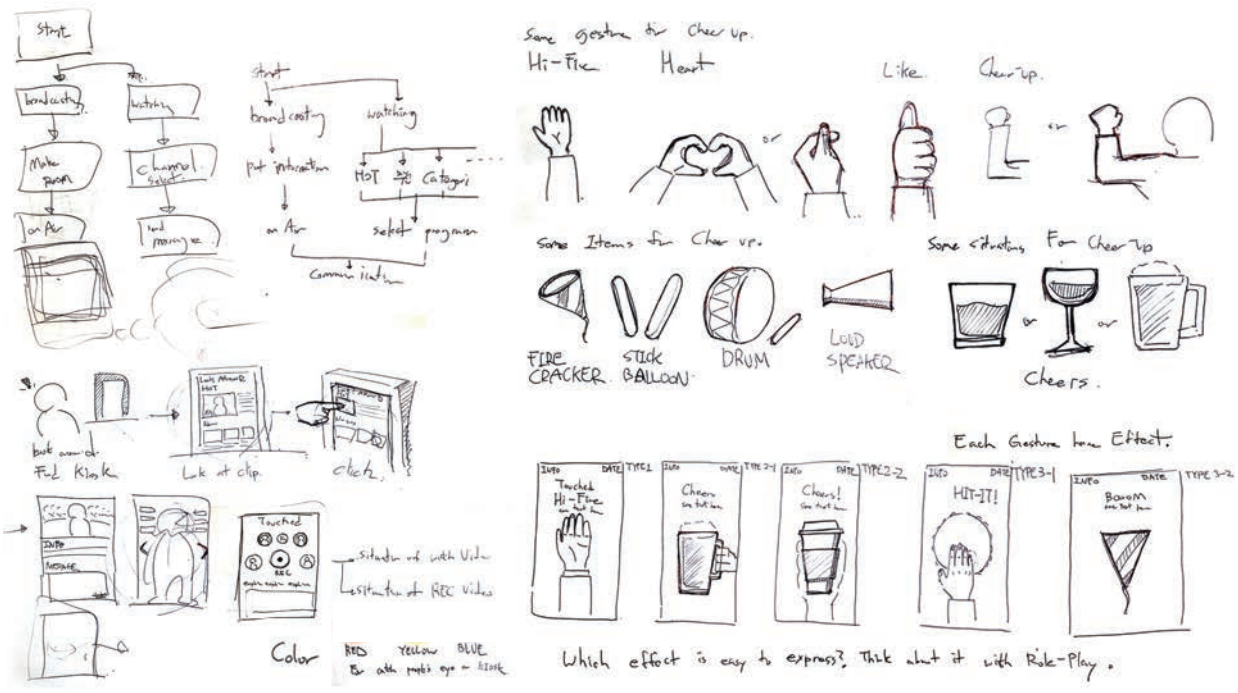 Start
broadcasting
watching
Make
room
Channel
select
on Air
Send
message
start
broadcasting
watching
put information
HOT
Categori
on Air
select program
Communication
look around
Find Kiosk
HOT
Look at clip.
click
INFO
MESSAGE
Touched
REC
situation of with Video
situation of REC Video
Color
RED YELLOW BLUE
For catch people's eye on KIOSK
Some gesture for Cheer up.
Hi-Five
Heart
or
Like.
Cheer-up.
or
Some Items for Cheer up.
FIRE
CRACKER.
STICK
BALLOON
DRUM
LOUD
SPEAKER
Some situations For Cheer-Up
or
or
Cheers.
Each Gesture have Effect.
INFO DATE TYPE1
Touched
Hi-Five
some text here
INFO DATE TYPE 2-1
Cheers
some text here
INFO DATE TYPE2-2
Cheers!
some text here
INFO DATE TYPE3-1
HIT-IT!
INFO DATE TYPE 3-2
BOOOM
some text here
Which effect is easy to express?, Think about it with Role-Play.